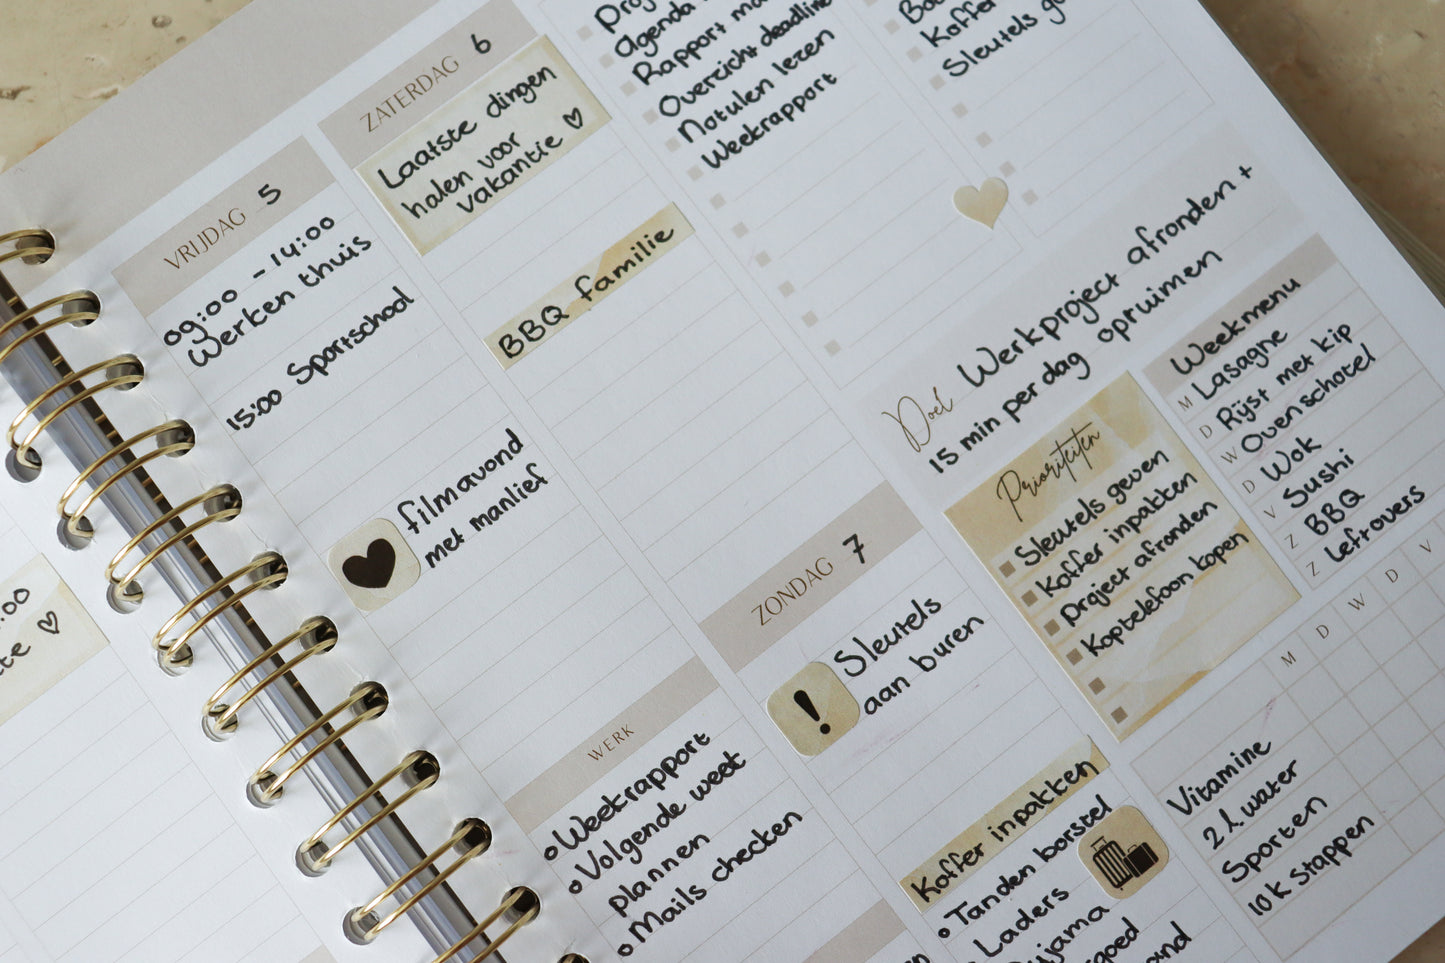 VRIJDAG 5
09:00 - 14:00
Werken thuis
15:00 Sportschool
filmavond
met manlief
ZATERDAG 6
Laatste dingen
halen voor
vakantie ♡
BBQ familie
WERK
Weekrapport
Volgende week
plannen
Mails checken
agenda
Rapport
Overzicht deadline
Notulen lezen
Weekrapport
Koffer
Sleutels
Doel Werkproject afronden +
15 min per dag opruimen
ZONDAG 7
Sleutels
aan buren
Koffer inpakken
Tandenborstel
Laders
Prioriteiten
Sleutels geven
Koffer inpakken
Project afronden
Koptelefoon kopen
Weekmenu
M Lasagne
D Rijst met kip
W Ovenschotel
D Wok
V Sushi
Z BBQ
Z Leftovers
M D W D V
Vitamine
2L water
Sporten
10k stappen